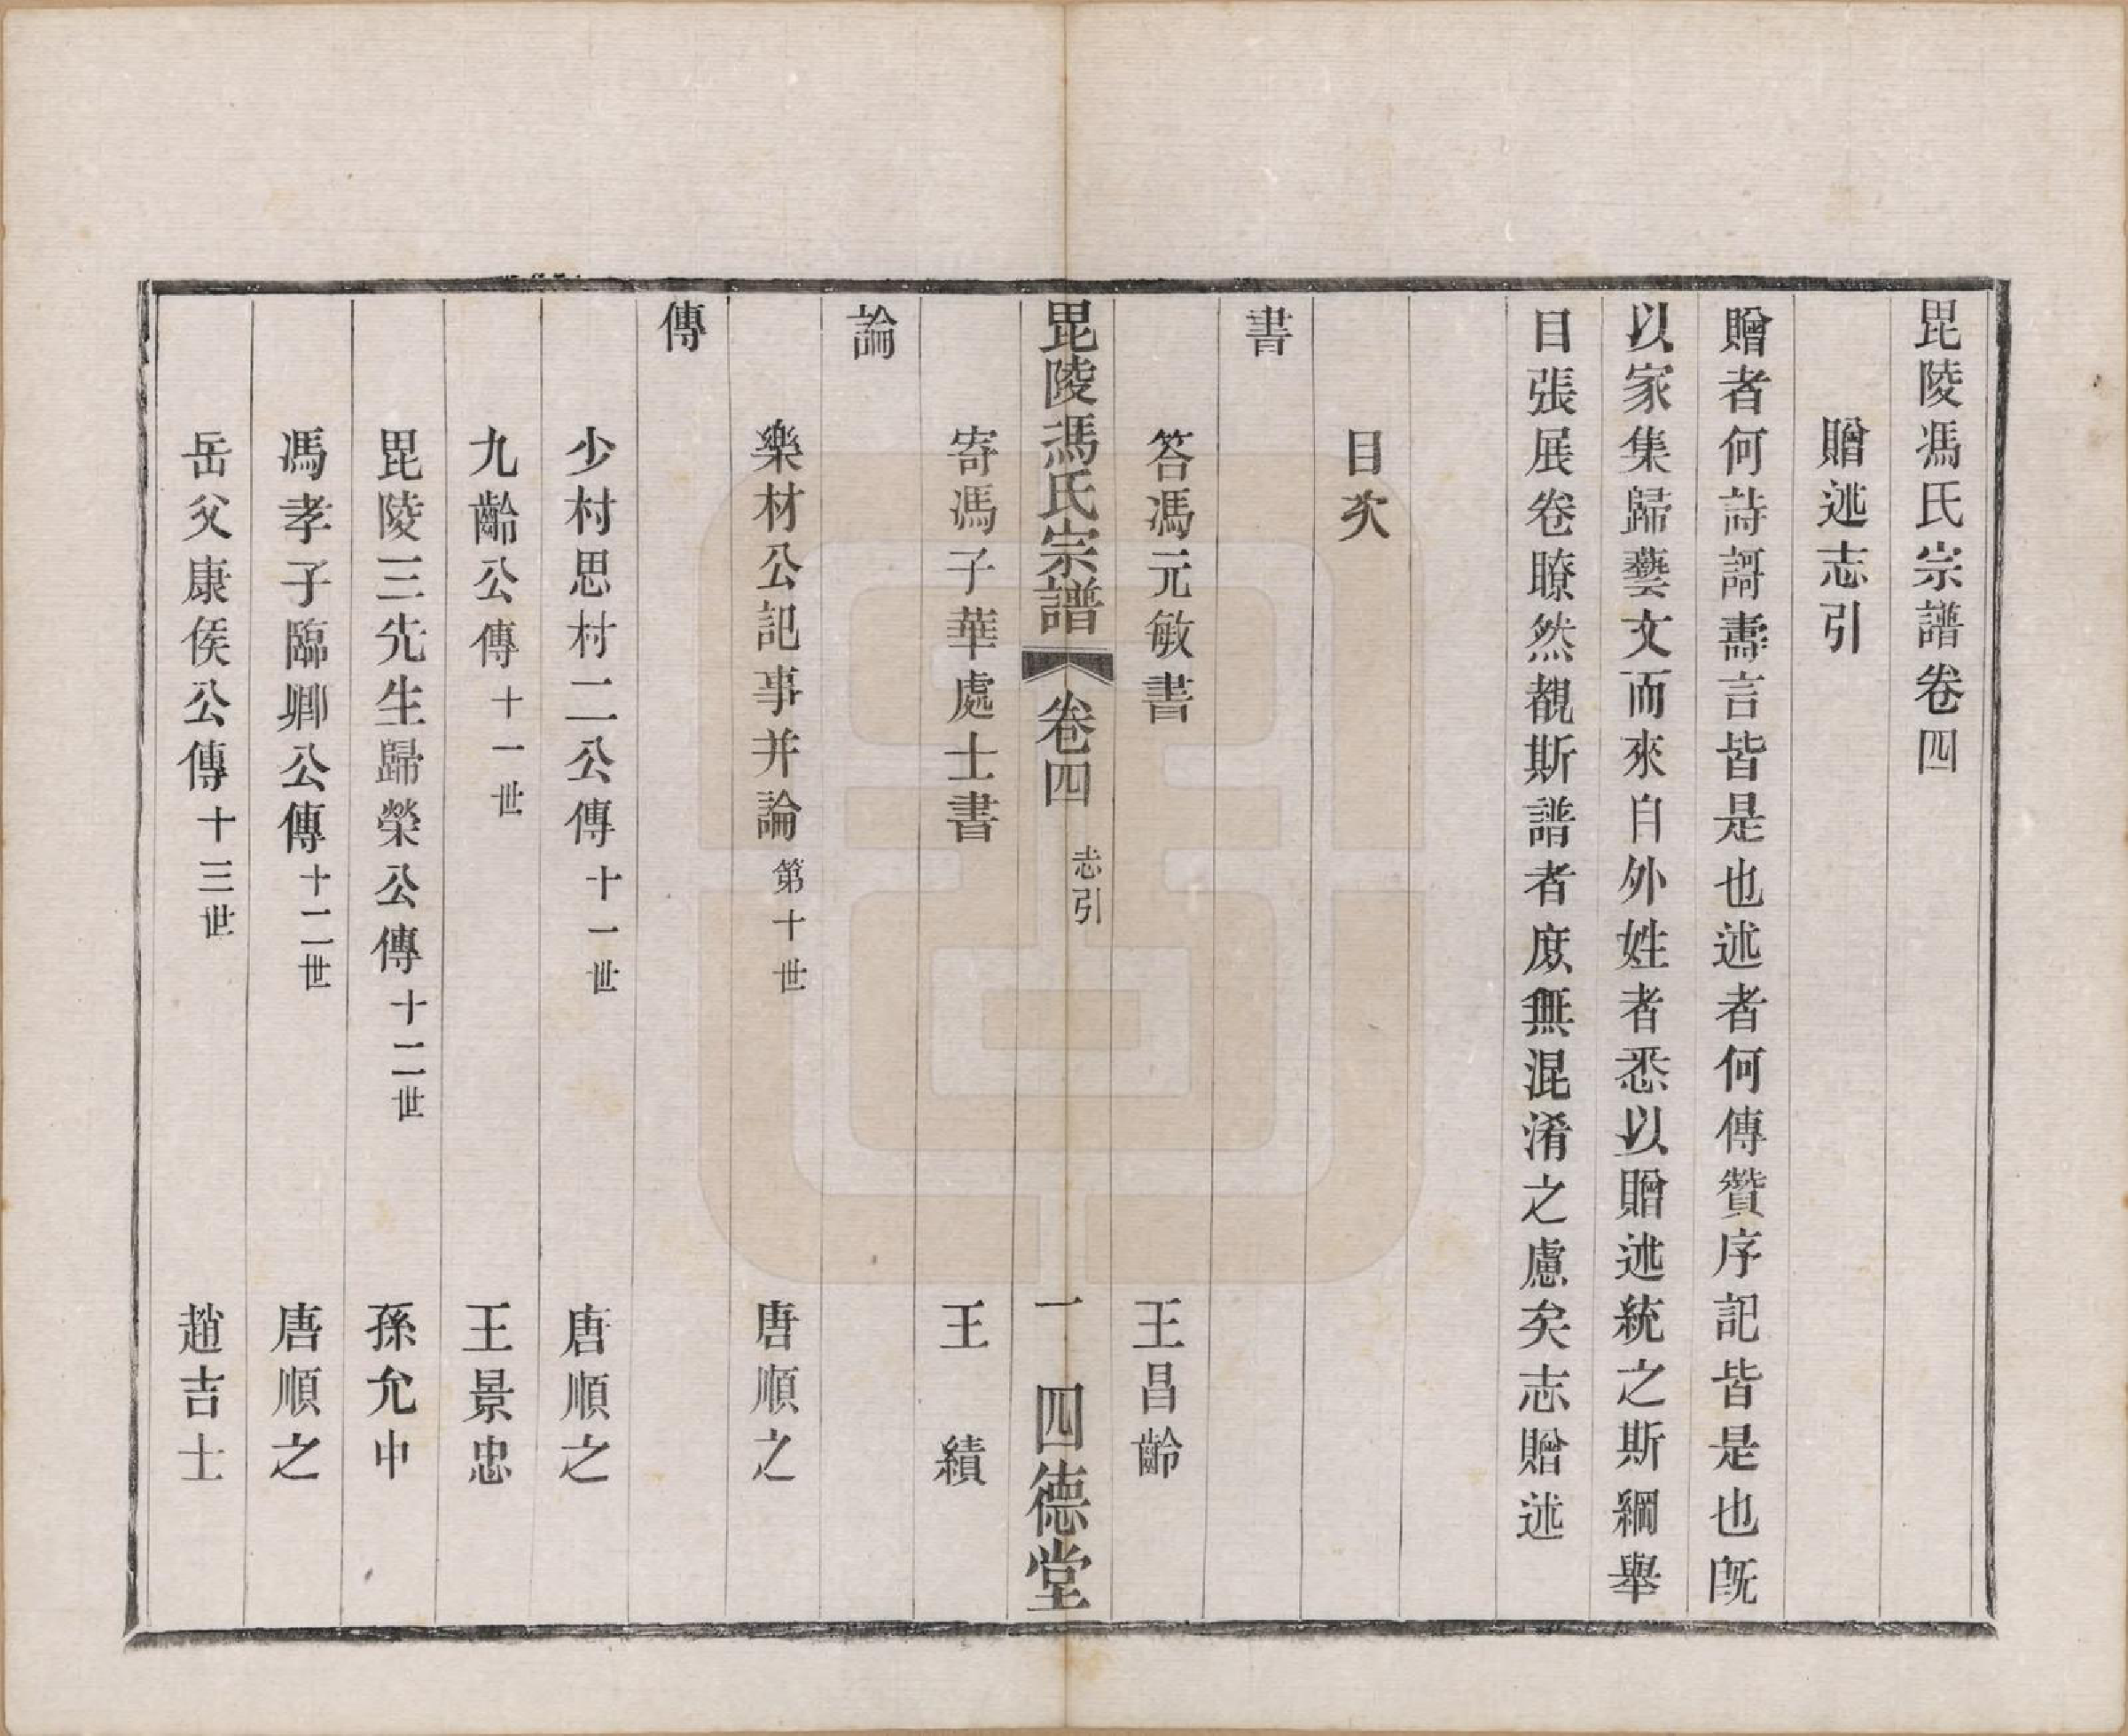 毘陵馮氏宗譜卷四
贈述志引
贈者何詩謌壽言皆是也述者何傳贊序記皆是也旣
以家集歸藝文而來自外姓者悉以贈述統之斯綱舉
目張展卷瞭然覩斯譜者庶無混淆之慮矣志贈述
目次
書
答馮元敏書 王昌齡
毘陵馮氏宗譜 卷四 志引 一 四德堂
寄馮子華處士書 王績
論
樂材公記事并論 第十世 唐順之
傳
少村思村二公傳 十一世 唐順之
九齡公傳 十一世 王景忠
毘陵三先生歸榮公傳 十二世 孫允中
馮孝子臨卿公傳 十二世 唐順之
岳父康侯公傳 十三世 趙吉士